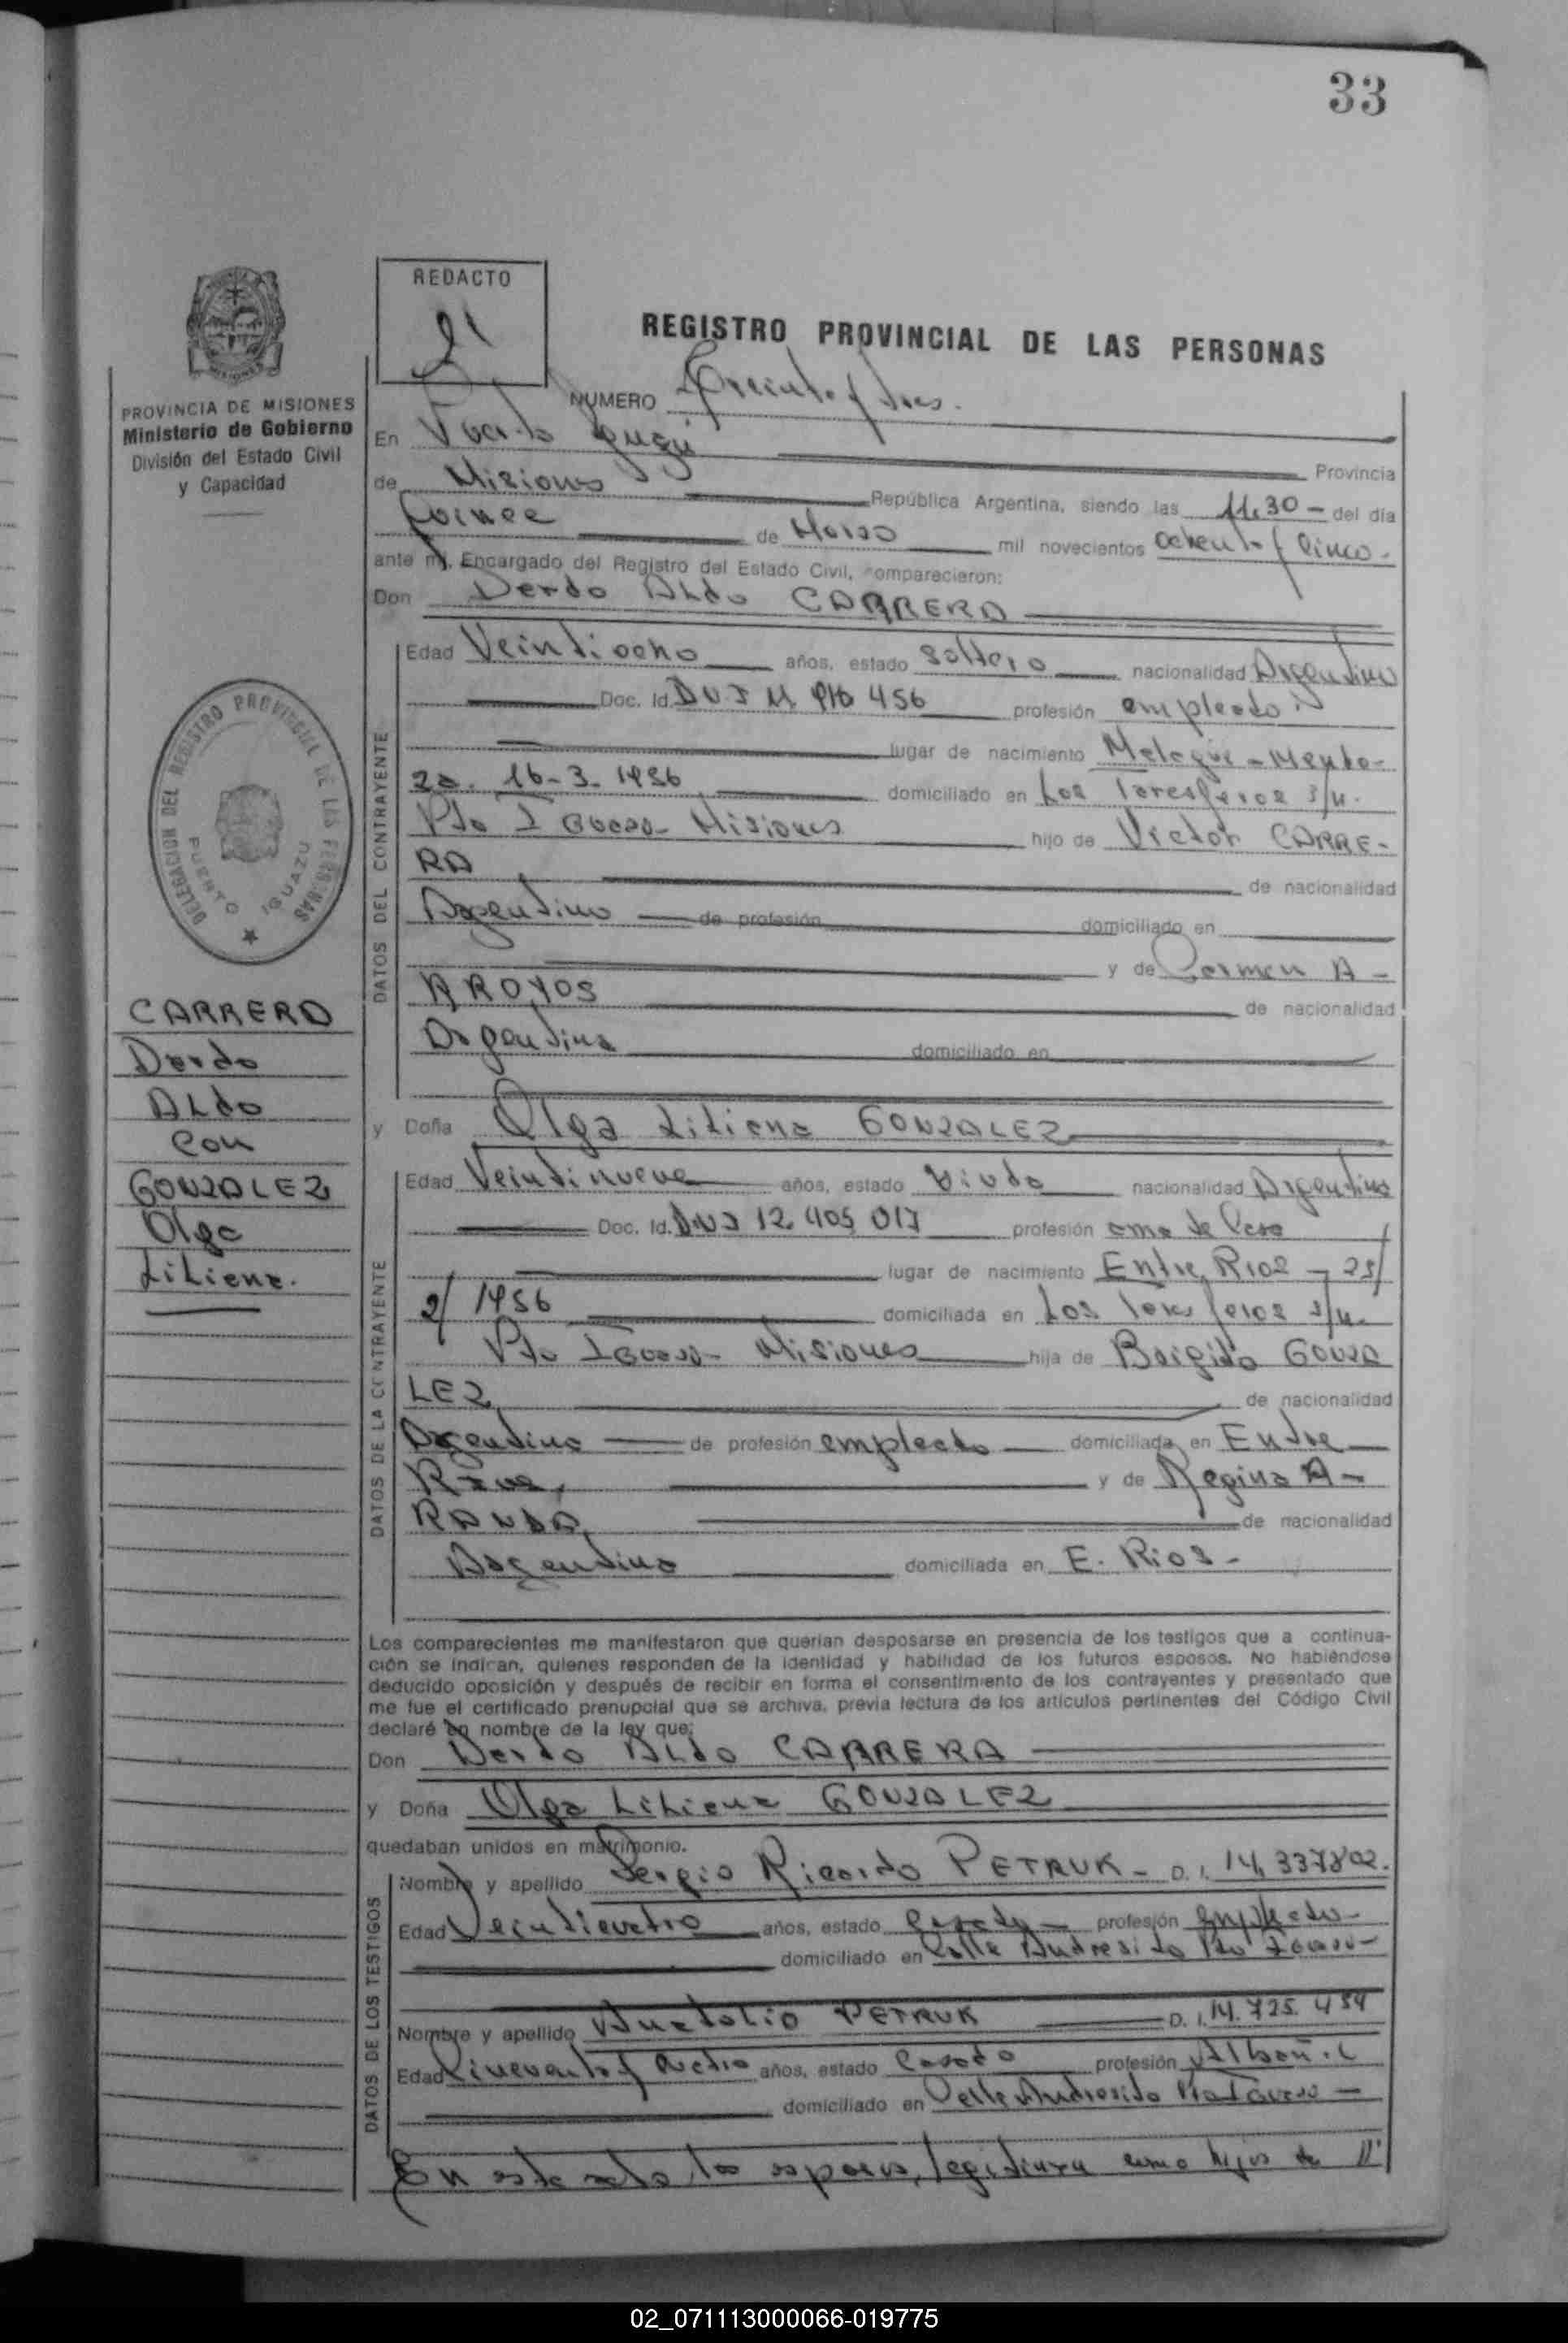 33
REDACTO
REGISTRO PROVINCIAL DE LAS PERSONAS
PROVINCIA DE MISIONES
Ministerio de Gobierno
División del Estado Civil
y Capacidad
NUMERO Treinta y tres.
En Puerto Iguazú Provincia
de Misiones República Argentina, siendo las 11,30 - del día
quince de Marzo mil novecientos ochenta y cinco.
ante mí, Encargado del Registro del Estado Civil, comparecieron:
Don Dardo ALdo CARRERA
Edad Veintiocho años, estado soltero nacionalidad Argentino
Doc. Id. D N I 11 916 456 profesión empleado
lugar de nacimiento Malague - Mendo-
za. 16-3-1956 domiciliado en Los s/n.
Pto Iguazu - Misiones hijo de Victor CARRE-
RA de nacionalidad
Argentino de profesión domiciliado en
y de Carmen A-
RROYOS de nacionalidad
Argentina domiciliado en
DATOS DEL CONTRAYENTE
DELEGACION DEL REGISTRO PROVINCIAL DE LAS PERSONAS
PUERTO IGUAZU
CARRERA
Dardo
ALdo
con
GONZALEZ
Olga
Liliana.
y Doña Olga Liliana GONZALEZ
Edad Veintinueve años, estado viuda nacionalidad Argentina
Doc. Id. DNI 12.405 017 profesión ama de casa
lugar de nacimiento Entre Rios - 25/
2/ 1956 domiciliada en Los s/n.
Pto Iguazu - Misiones hija de Brigido GONZA
LEZ de nacionalidad
Argentino de profesión empleado domiciliada en Entre
Rios, y de Regina A-
RANDA, de nacionalidad
Argentina domiciliada en E. Rios -
DATOS DE LA CONTRAYENTE
Los comparecientes me manifestaron que querían desposarse en presencia de los testigos que a continua-
ción se indican, quienes responden de la identidad y habilidad de los futuros esposos. No habiéndose
deducido oposición y después de recibir en forma el consentimiento de los contrayentes y presentado que
me fue el certificado prenupcial que se archiva, previa lectura de los artículos pertinentes del Código Civil
declaré en nombre de la ley que:
Don Dardo ALdo CARRERA
y Doña Olga Liliana GONZALEZ
quedaban unidos en matrimonio.
Nombre y apellido Sergio Ricardo PETRUK - D. I. 14,337802.
Edad Veinticuatro años, estado casado profesión Empleado
domiciliado en Calle Andresito Pto Iguazu -
Nombre y apellido Anatolio PETRUK D. I. 14.725.454
Edad Cincuenta y cuatro años, estado casado profesión Albañil
domiciliado en Calle Andresito Pto Iguazu -
DATOS DE LOS TESTIGOS
En este acto los esposos, legitiman como hijos de
02_071113000066-019775